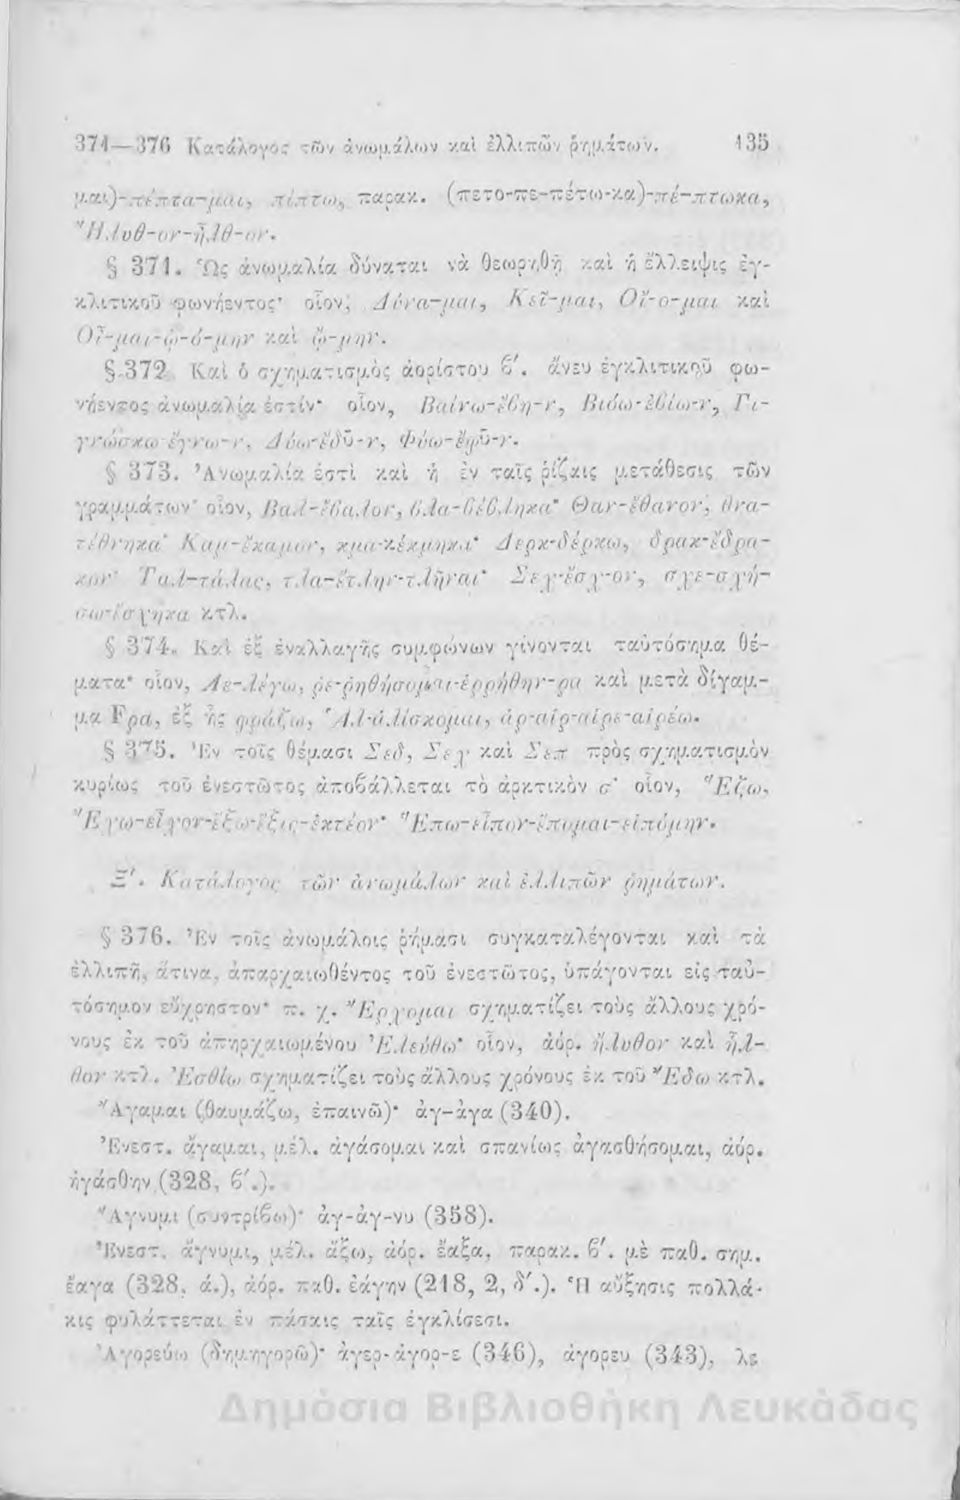 371—376 Κατάλογος τῶν ἀνωμάλων καὶ ἐλλιπῶν ῥημάτων. 135
μαι)-πέπτα-μαι, πίπτω, παρακ. (πετο-πε-πέτω-κα)-πέ-πτωκα,
Ἤλυθ-ον-ἦλθ-ον.
§ 371. Ὡς ἀνωμαλία δύναται νὰ θεωρηθῇ καὶ ἡ ἔλλειψις ἐγ-
κλιτικοῦ φωνήεντος· οἷον, Δύνα-μαι, Κεῖ-μαι, Οἴ-ο-μαι καὶ
Οἶ-μαι-ᾠ-ό-μην καὶ ᾤ-μην.
§ 372 Καὶ ὁ σχηματισμὸς ἀορίστου β΄. ἄνευ ἐγκλιτικοῦ φω-
νήεντος ἀνωμαλία ἐστίν· οἷον, Βαίνω-ἔβη-ν, Βιόω-ἐβίω-ν, Γι-
γνώσκω-ἔγνω-ν, Δύω-ἔδῦ-ν, Φύω-ἔφῦ-ν.
§ 373. Ἀνωμαλία ἐστὶ καὶ ἡ ἐν ταῖς ῥίζαις μετάθεσις τῶν
γραμμάτων· οἷον, Βαλ-ἔβαλον, βλα-βέβληκα· Θαν-ἔθανον, θνα-
τέθνηκα· Καμ-ἔκαμον, κμα-κέκμηκα· Δερκ-δέρκω, δρακ-ἔδρα-
κον· Ταλ-τάλας, τλα-ἔτλην-τλῆναι· Σεχ-ἔσχ-ον, σχε-σχή-
σω-ἔσχηκα κτλ.
§ 374. Καὶ ἐξ ἐναλλαγῆς συμφώνων γίνονται ταὐτόσημα θέ-
ματα· οἷον, Λε-λέγω, ῥε-ῥηθήσομαι-ἐρρήθην-ρα καὶ μετὰ δίγαμ-
μα Fρα, ἐξ ἧς φράζω, Ἁλ-ἁλίσκομαι, ἁρ-αἱρ-αἱρε-αἱρέω.
§ 375. Ἐν τοῖς θέμασι Σεδ, Σεχ καὶ Σεπ πρὸς σχηματισμὸν
κυρίως τοῦ ἐνεστῶτος ἀποβάλλεται τὸ ἀρκτικὸν σ· οἷον, Ἕζω,
Ἔχω-εἶχον-ἕξω-ἕξις-ἑκτέον· Ἕπω-εἶπον-ἕπομαι-εἱπόμην.
Ξ΄. Κατάλογος τῶν ἀνωμάλων καὶ ἐλλιπῶν ῥημάτων.
§ 376. Ἐν τοῖς ἀνωμάλοις ῥήμασι συγκαταλέγονται καὶ τὰ
ἐλλιπῆ, ἅτινα, ἀπαρχαιωθέντος τοῦ ἐνεστῶτος, ὑπάγονται εἰς ταὐ-
τόσημον εὔχρηστον· π. χ. Ἔρχομαι σχηματίζει τοὺς ἄλλους χρό-
νους ἐκ τοῦ ἀπηρχαιωμένου Ἐλεύθω· οἷον, ἀόρ. ἤλυθον καὶ ἦλ-
θον κτλ. Ἐσθίω σχηματίζει τοὺς ἄλλους χρόνους ἐκ τοῦ Ἔδω κτλ.
Ἄγαμαι (θαυμάζω, ἐπαινῶ)· ἀγ-ἀγα (340).
Ἐνεστ. ἄγαμαι, μέλ. ἀγάσομαι καὶ σπανίως ἀγασθήσομαι, ἀόρ.
ἠγάσθην (328, β΄.).
Ἄγνυμι (συντρίβω)· ἀγ-ἀγ-νυ (358).
Ἐνεστ. ἄγνυμι, μέλ. ἄξω, ἀόρ. ἔαξα, παρακ. β΄. μὲ παθ. σημ.
ἔαγα (328, ά.), ἀόρ. παθ. ἐάγην (218, 2, δ΄.). Ἡ αὔξησις πολλά-
κις φυλάττεται ἐν πάσαις ταῖς ἐγκλίσεσι.
Ἀγορεύω (δημηγορῶ)· ἀγερ-ἀγορ-ε (346), ἀγορευ (343), λε
Δημόσια Βιβλιοθήκη Λευκάδας